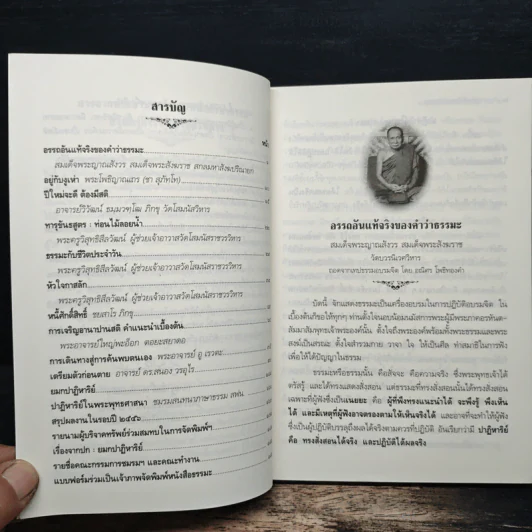 สารบัญ
หน้า
อรรถอันแท้จริงของคำว่าธรรมะ
สมเด็จพระญาณสังวร สมเด็จพระสังฆราช สกลมหาสังฆปริณายก
อยู่กับงูเห่า พระโพธิญาณเถร (ชา สุภัทโท)
ปีใหม่จะดี ต้องมีสติ
อาจารย์วิวัฒน์ ธมฺมวฑฺโฒ ภิกขุ วัดโสมนัสวิหาร
ทารุขันธสูตร : ท่อนไม้ลอยน้ำ
พระครูวิสุทธิสีลวัฒน์ ผู้ช่วยเจ้าอาวาสวัดโสมนัสราชวรวิหาร
ธรรมะกับชีวิตประจำวัน
พระครูวิสุทธิสีลวัฒน์ ผู้ช่วยเจ้าอาวาสวัดโสมนัสราชวรวิหาร
หัวใจกาสลัก
พระครูวิสุทธิสีลวัฒน์ ผู้ช่วยเจ้าอาวาสวัดโสมนัสราชวรวิหาร
หนี้ศักดิ์สิทธิ์ ชยสาโร ภิกขุ
การเจริญอานาปานสติ คำแนะนำเบื้องต้น
พระอาจารย์ใหญ่พะอ็อก ตอยะสยาดอ
การเดินทางสู่การค้นพบตนเอง พระอาจารย์ อู เรวตะ
เตรียมตัวก่อนตาย อาจารย์ ดร.สนอง วรอุไร
ยมกปาฏิหาริย์
ปาฏิหาริย์ในพระพุทธศาสนา ชมรมสนทนาภาษาธรรม
สรุปผลงานในรอบปี ๒๕๕๖
รายนามผู้บริจาคทรัพย์ร่วมสมทบในการจัดพิมพ์ฯ
เรื่องจากปก : ยมกปาฏิหาริย์
รายชื่อคณะกรรมการชมรมฯ และคณะทำงาน
แบบฟอร์มร่วมเป็นเจ้าภาพจัดพิมพ์หนังสือธรรมะ
อรรถอันแท้จริงของคำว่าธรรมะ
สมเด็จพระญาณสังวร สมเด็จพระสังฆราช
วัดบวรนิเวศวิหาร
ถอดจากเทปธรรมอบรมจิต โดย อณิศร โพธิทองคำ
บัดนี้ จักแสดงธรรมะเป็นเครื่องอบรมในการปฏิบัติอบรมจิต ใน
เบื้องต้นก็ขอให้ทุกๆ ท่านตั้งใจนอบน้อมนมัสการพระผู้มีพระภาคอรหันต-
สัมมาสัมพุทธเจ้าพระองค์นั้น ตั้งใจถึงพระองค์พร้อมทั้งพระธรรมและพระ
สงฆ์เป็นสรณะ ตั้งใจสำรวมกาย วาจา ใจ ให้เป็นศีล ทำสมาธิในการฟัง
เพื่อให้ได้ปัญญาในธรรม
ธรรมะหรือธรรมนั้น คือสัจจะ คือความจริง ซึ่งพระพุทธเจ้าได้
ตรัสรู้ และได้ทรงแสดงสั่งสอน แต่ธรรมะที่ทรงสั่งสอนนั้นได้ทรงสั่งสอน
เฉพาะที่ผู้ฟังซึ่งเป็นเนยยะ คือ ผู้ที่พึงทรงแนะนำได้ จะพึงรู้ พึงเห็น
ได้ และมีเหตุที่ผู้ฟังอาจตรองตามให้เห็นจริงได้ และอาจที่จะทำให้ผู้ฟัง
ซึ่งเป็นผู้ปฏิบัติบรรลุถึงผลได้จริงตามควรที่ปฏิบัติ อันเรียกว่ามี ปาฏิหาริย์
คือ ทรงสั่งสอนได้จริง และปฏิบัติได้ผลจริง